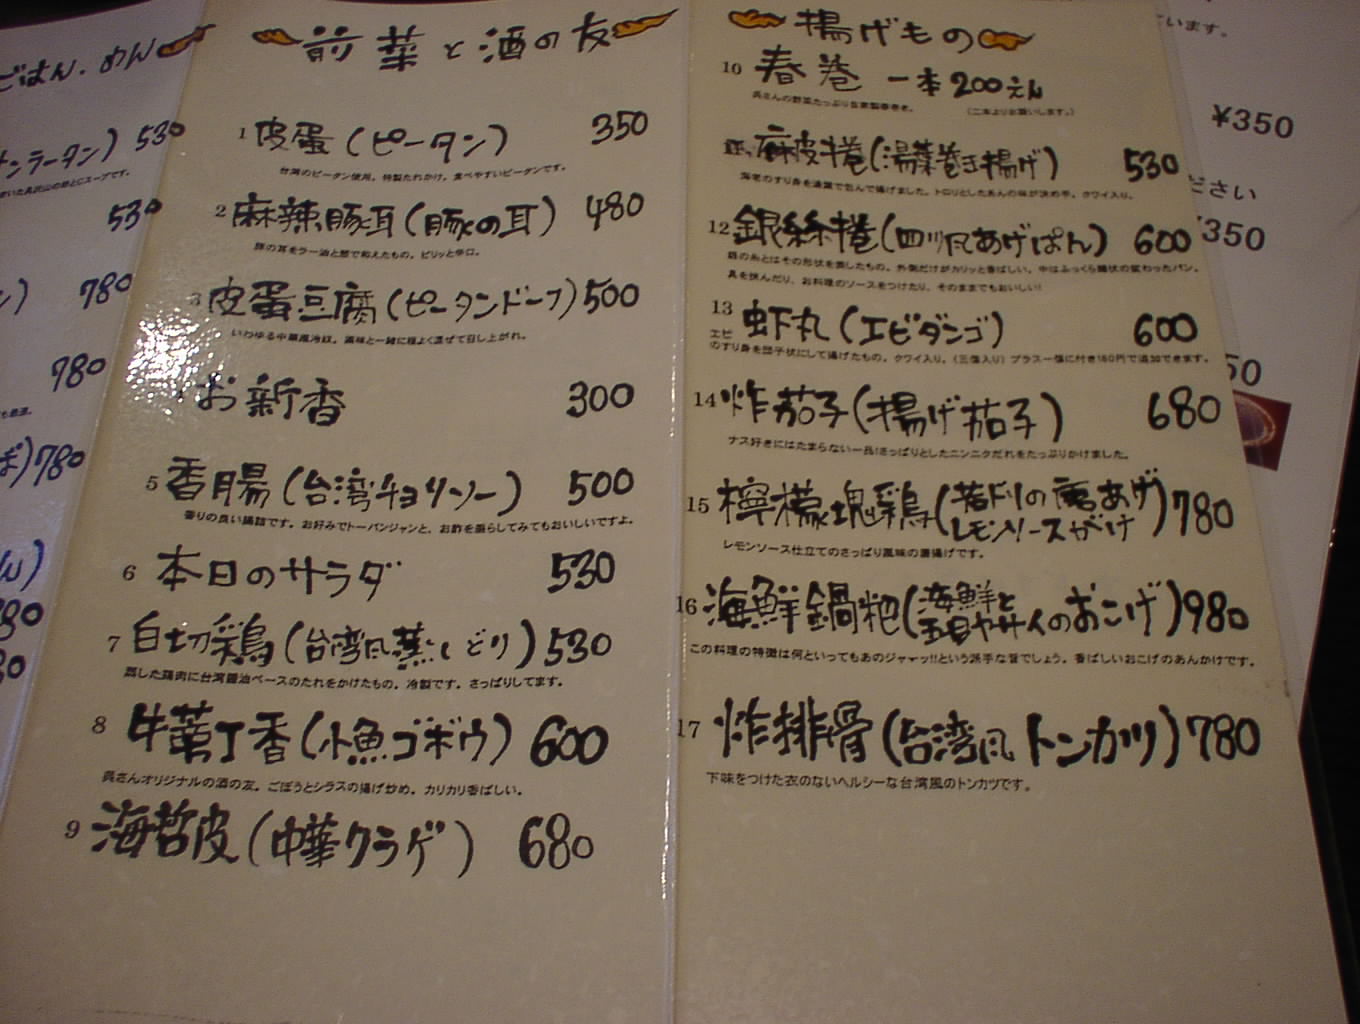 ごはん．めん
ンラータン) 530
530
780
780
ば)780
ん)
前菜と酒の友
1 皮蛋(ピータン) 350
台湾のピータン使用。特製たれかけ。食べやすいピータンです。
2 麻辣豚耳(豚の耳) 480
豚の耳をラー油と葱で和えたもの。ピリッと辛口。
3 皮蛋豆腐(ピータンドーフ) 500
いわゆる中華風冷奴。薬味と一緒に程よく混ぜて召し上がれ。
お新香 300
5 香腸(台湾チョリソー) 500
香りの良い腸詰です。お好みでトーバンジャンと、お酢を垂らしてみてもおいしいですよ。
6 本日のサラダ 530
7 白切鶏(台湾風蒸しどり) 530
蒸した鶏肉に台湾醤油ベースのたれをかけたもの。冷製です。さっぱりしてます。
8 牛蒡丁香(小魚ゴボウ) 600
呉さんオリジナルの酒の友。ごぼうとシラスの揚げ炒め。カリカリ香ばしい。
9 海哲皮(中華クラゲ) 680
揚げもの
10 春巻 一本200えん
呉さんの野菜たっぷり自家製春巻き。 (二本よりお願いします。)
麻皮牛巻(湯葉巻き揚げ) 530
海老のすり身を湯葉で包んで揚げました。トロリとしたあんの味が決め手。クワイ入り。
12 銀絲捲(四川風あげぱん) 600
銀の糸とはその形状を表したもの。外側だけがカリッと香ばしい、中はふっくら麺状の変わったパン。
具を挟んだり、お料理のソースをつけたり、そのままでもおいしい!
13 虾丸(エビダンゴ) 600
エビのすり身を団子状にして揚げたもの。クワイ入り。(三個入り)プラス一個に付き160円で追加できます。
14 炸茄子(揚げ茄子) 680
ナス好きにはたまらない一品!さっぱりとしたニンニクだれをたっぷりかけました。
15 檸檬塊鶏(若ドリの唐あげ レモンソースがけ) 780
レモンソース仕立てのさっぱり風味の唐揚げです。
16 海鮮鍋粑(海鮮と五目ヤサイのおこげ) 980
この料理の特徴は何といってもあのジャーッ!!という派手な音でしょう。香ばしいおこげのあんかけです。
17 炸排骨(台湾風トンカツ) 780
下味をつけた衣のないヘルシーな台湾風のトンカツです。
います。
¥350
ださい
¥350
50